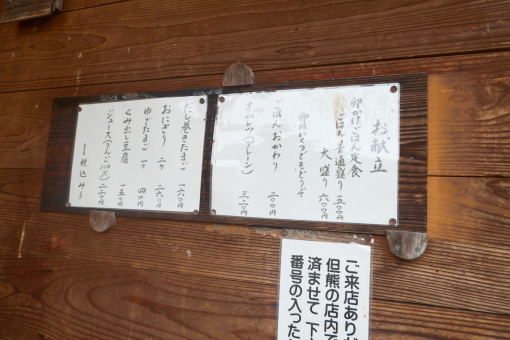 お献立
卵かけごはん定食
ごはん 普通盛り 五〇〇円
大盛り 六〇〇円
卵はいくつでもどうぞ
ごはんおかわり 二〇〇円
オムレツ(プレーン) 三二〇円
だし巻きたまご 一六〇円
おにぎり 二ケ 二六〇円
ゆでたまご 一ケ 四〇円
くみ出し豆腐 一五〇円
ジュース(りんご100%) 二二〇円
税込み
ご来店ありが
但熊の店内で
済ませて 下
番号の入った